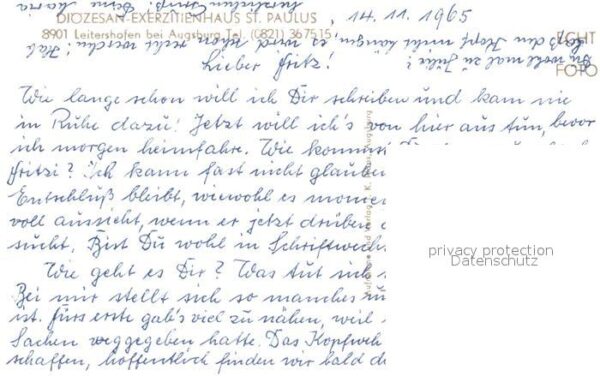 DIÖZESAN-EXERZITIENHAUS ST. PAULUS
8901 Leitershofen bei Augsburg Tel. (0821) 367515
, 14.11.1965
ECHT
FOTO
Lieber Fritz!
Wie lange schon will ich Dir schreiben und kam nie
in Ruhe dazu! Jetzt will ich's von hier aus tun, bevor
ich morgen heimfahre. Wie kommst
Fritzi? Ich kann fast nicht glauben
Entschluß bleibt, wiewohl es momen
voll aussieht, wenn er jetzt drüben
sucht. Bist Du wohl in Schriftwech
Wie geht es Dir? Was tut sich
Bei mir stellt sich so manches
ist. Fürs erste gab's viel zu nähen, weil
Sachen weggegeben hatte. Das Kopfweh
schaffen, hoffentlich finden wir bald
privacy protection
Datenschutz